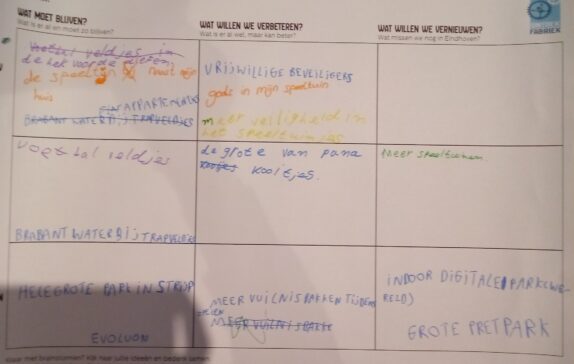 WAT MOET BLIJVEN?
Wat is er al en moet zo blijven?
WAT WILLEN WE VERBETEREN?
Wat is er al, maar kan beter?
WAT WILLEN WE VERNIEUWEN?
Wat missen we nog in Eindhoven?
FABRIEK
voetbal veldjes in
de het voor de
de speeltuin naast mijn
huis
BRABANT WATER BIJ TRAPVELDJES
VRIJWILLIGE BEVEILIGERS
gods in mijn speeltuin
meer veiligheid in
het speeltuintjes
voetbal veldjes
BRABANT WATER BIJ TRAPVELDJES
de grote van pana
kooitjes
kooitjes.
meer speeltuinen
HELE GROTE PARK IN STRIJP
EVOLUON
MEER VUILNISBAKKEN TIJDENS
MEER VUILNISBAKKE
INDOOR DIGITALE PARK(WE-
RELD)
GROTE PRETPARK
Klaar met brainstormen? Kijk naar jullie ideeën en bedenk samen